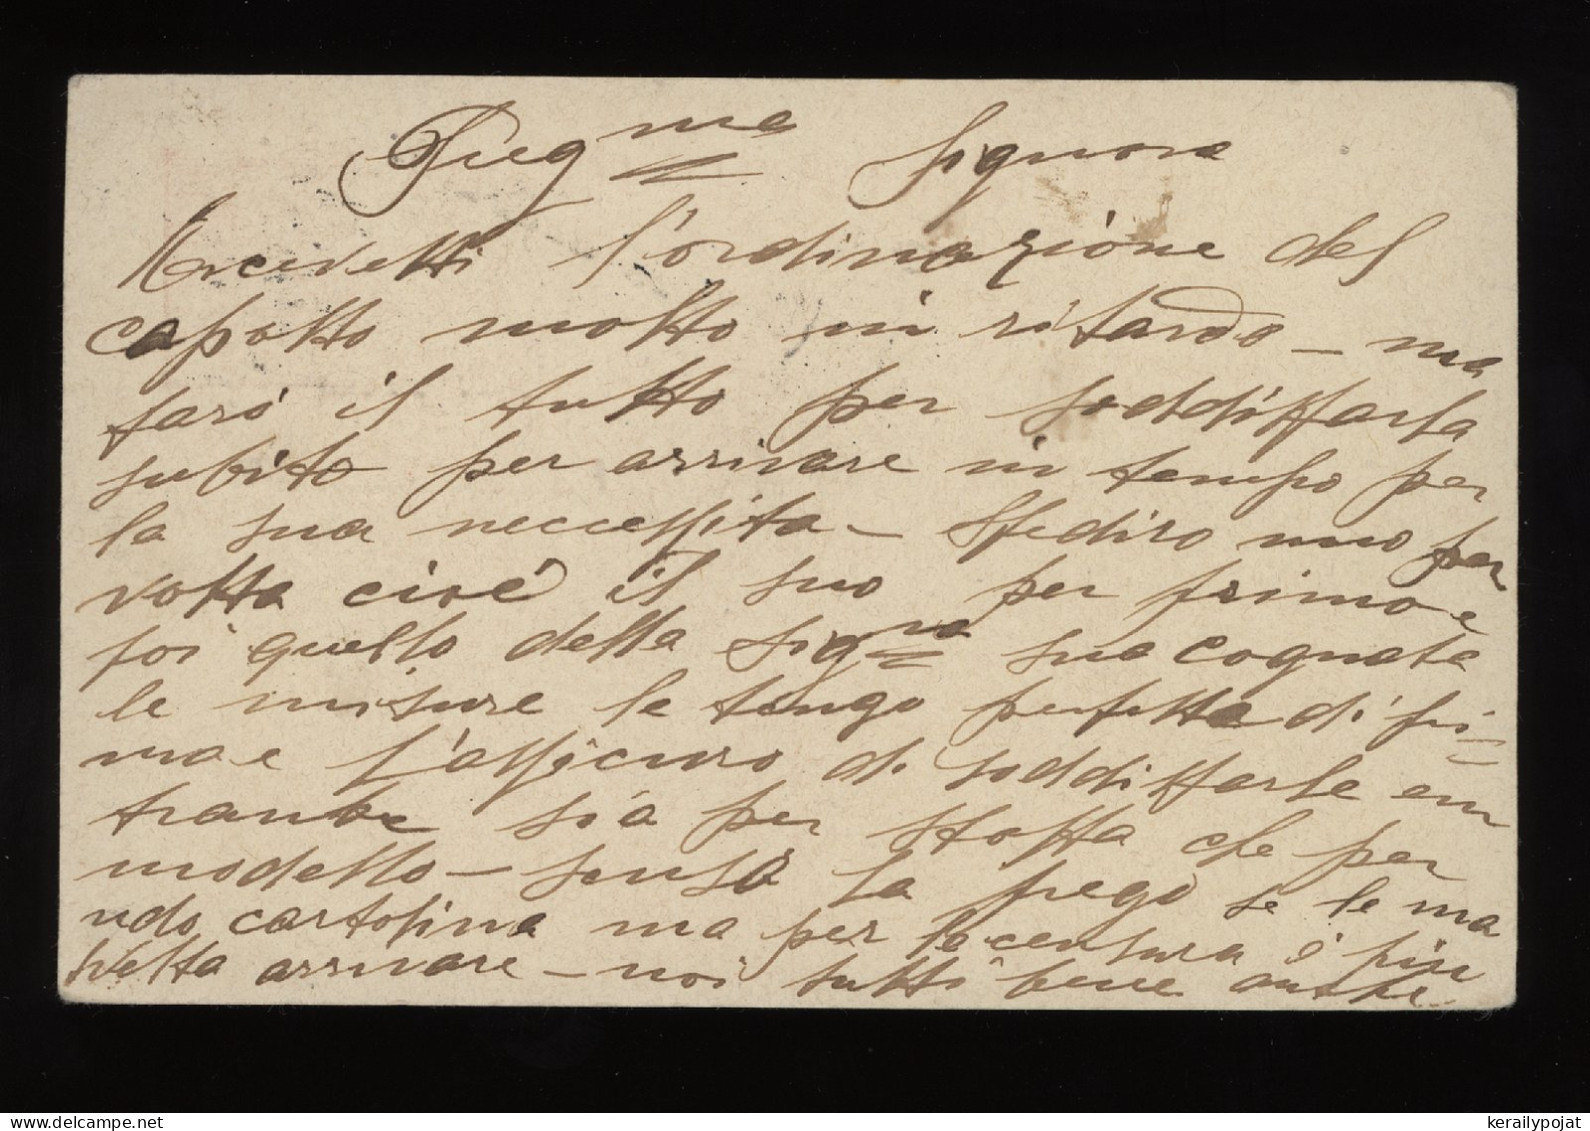 Preg^ma Signora
Ricevetti l'ordinazione del
capotto molto in ritardo — ma
farò il tutto per soddisfarla
subito per arrivare in tempo per
la sua neccessita — Spediro uno per
volta cioé il suo per primo e
poi quello della Sig^na sua cognata
le misure le tengo perfette di pri=
ma e l'assicuro di soddisfarle em
trambe sia per stoffa che per
modello — scusa la prego se le ma
ndo cartolina ma per la censura è più
svelta arrivare — noi tutti bene anche
kerailypojat